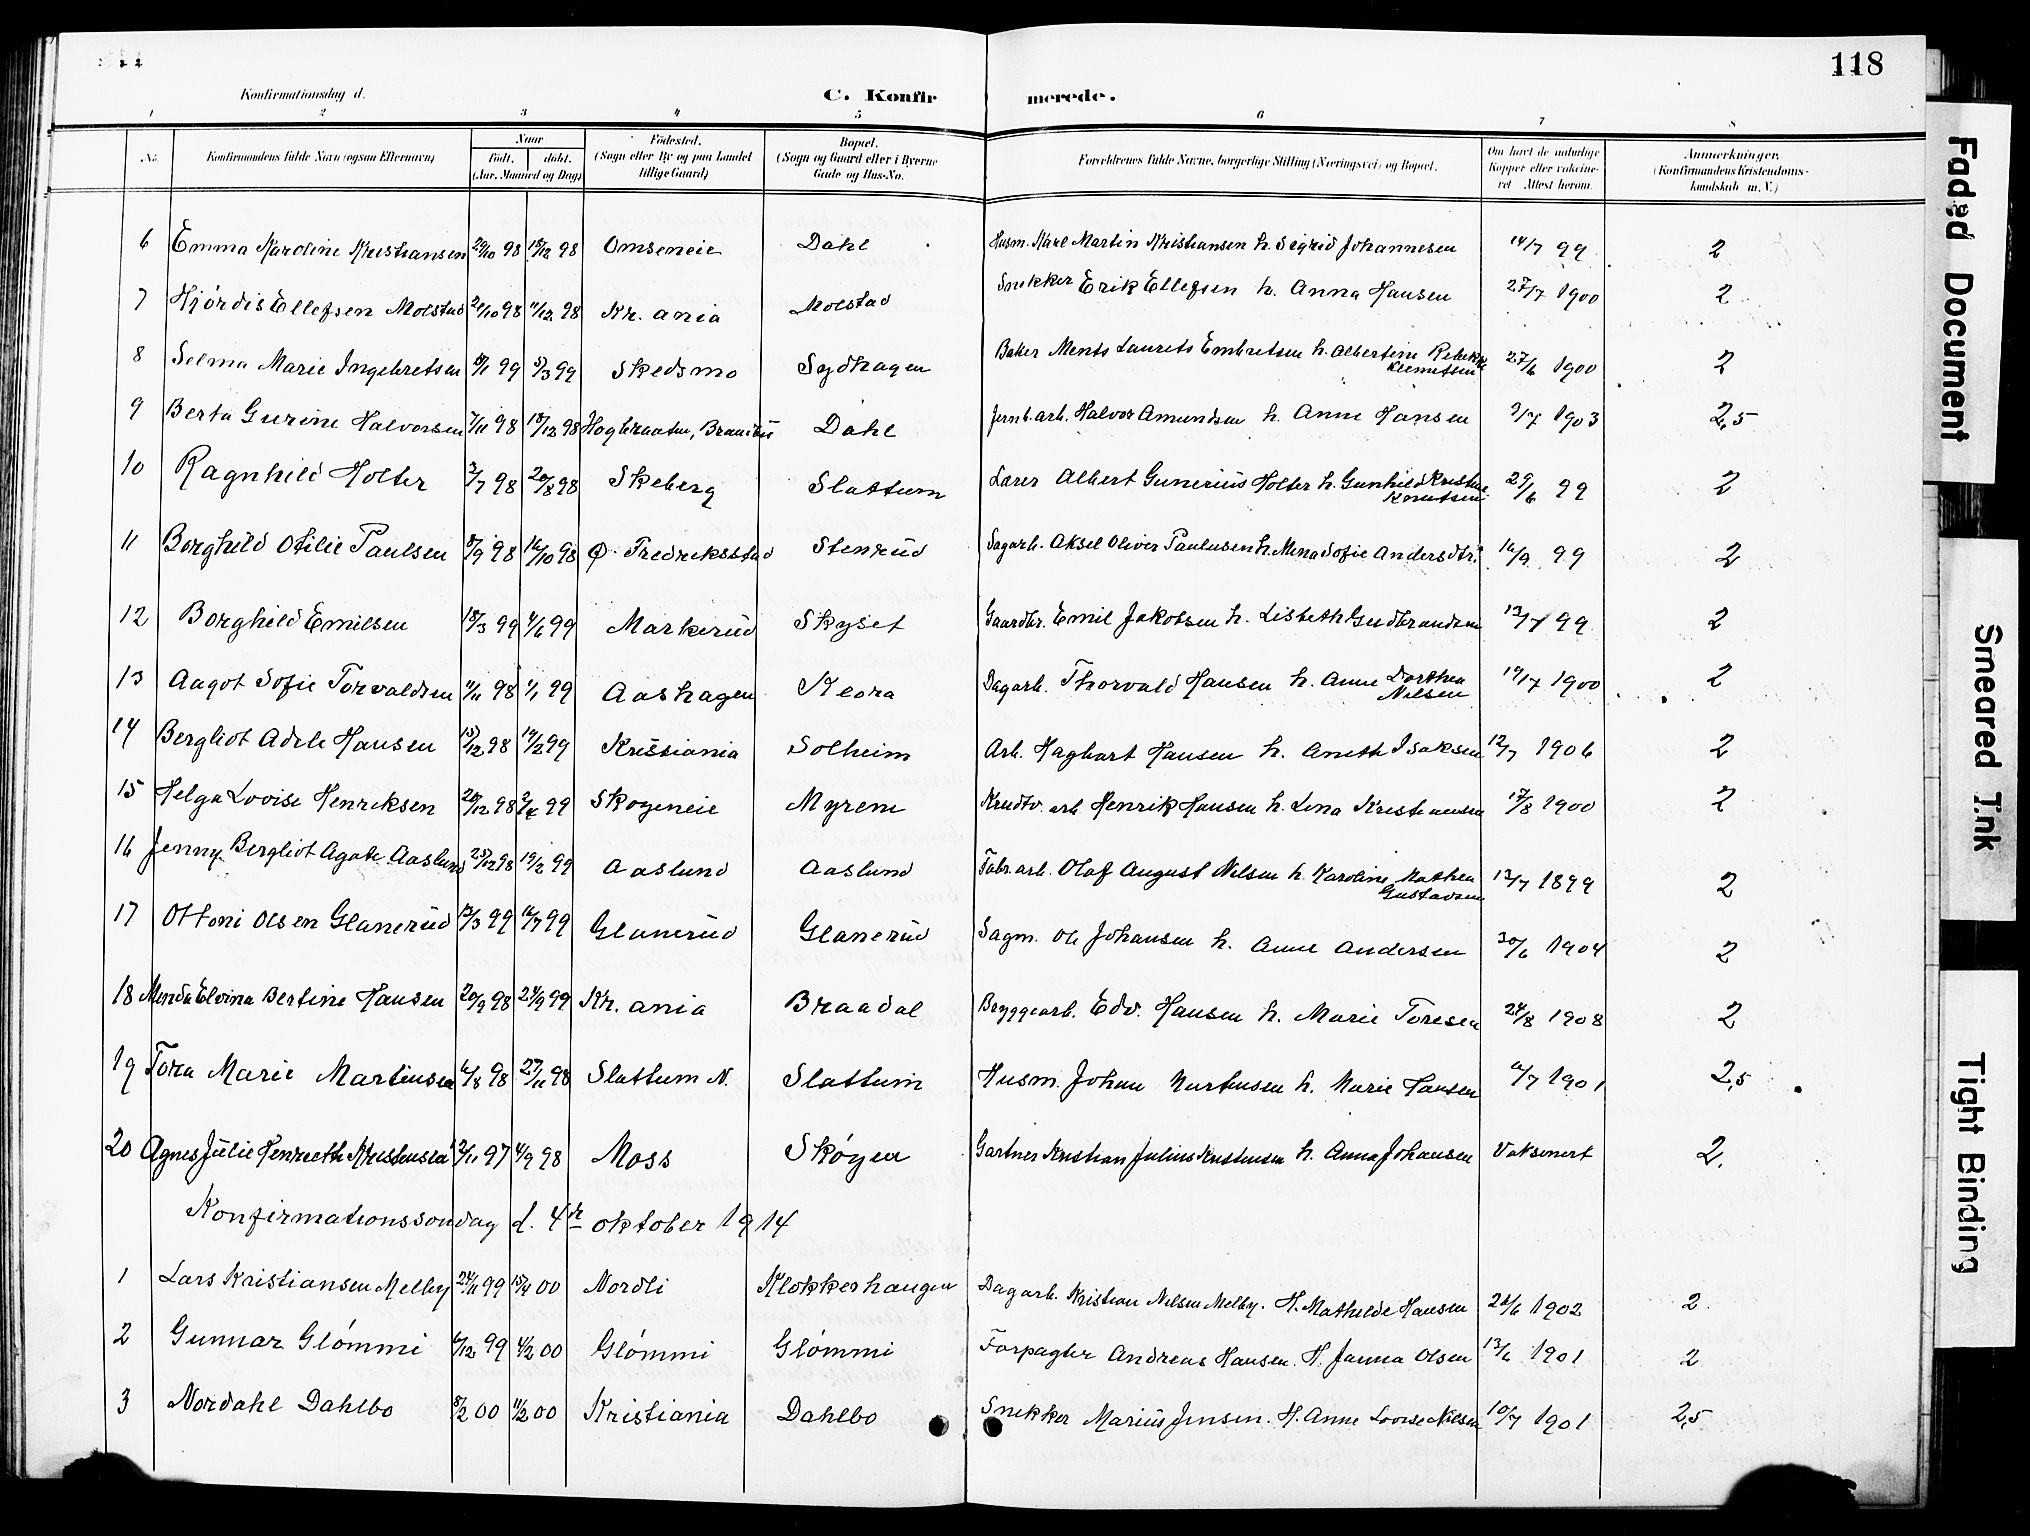 118
Konfirmationsdag d.
C. Konfirmerede.
1 2 3 4 5 6 7 8
No. Konfirmandens fulde Navn (ogsaa Efternavn) Naar født. døbt. (Aar, Maaned og Dag) Fødested. (Sogn eller By og paa Landet tillige Gaard) Bopæl. (Sogn og Gaard eller i Byerne Gade og Hus-No. Forældrenes fulde Navne, borgerlige Stilling (Næringsvei) og Bopæl. Om havt de naturlige Kopper eller vakcineret. Attest herom. Anmærkninger. (Konfirmandens Kristendomskundskab m. V.)
6 Emma Karoline Kristiansen 29/10 98 18/12 98 Omseneie Dahl Husm. Karl Martin Kristiansen h. Sigrid Johannesen 14/7 99 2
7 Hjördis Ellefsen Molstad 21/10 98 11/12 98 Kr. ania Molstad Snekker Erik Ellefsen h. Anna Hansen 27/7 1900 2
8 Selma Marie Ingebretsen 99 5/3 99 Skedsmo Sydhagen Baker Ments Laurets Embretsen h. Albertine Rebekka Klemetsen 27/6 1900 2
9 Berta Gurine Halvorsen 7/11 98 18/12 98 Hogbraaten, Dahl Jernb.arb. Halvor Amundsen h. Anne Hansen 9/7 1903 2,5
10 Ragnhild Holter 3/7 98 20/8 98 Skeberg Slattum Lærer Albert Gunerius Holter h. Gunhild Kristine Knutsen 29/6 99 2
11 Borghild Otilie Paulsen 8/9 98 16/10 98 Ø. Fredriksstad Stenrud Sagarb. Aksel Oliver Paulusen h. Mena Sofie Andersdtr. 16/9 99 2
12 Borghild Emilsen 18/3 99 4/6 99 Markerud Skyset Gaardbr. Emil Jakobsen h. Lisbeth Gudbrandsen 13/7 99 2
13 Aagot Sofie Torvaldsen 11/11 98 1/1 99 Aashagen Kleora Dagarb. Thorvald Hansen h. Anne Dorthea Nilsen 19/7 1900 2
14 Bergliot Adele Hansen 15/12 98 19/2 99 Kristiania Solheim Arb. Hagbart Hansen h. Anette Isaksen 12/7 1906 2
15 Helga Lovise Henriksen 20/12 98 2/4 99 Skogeneie Myrem Krudtv. arb. Henrik Hansen h. Lena Kristiansen 17/8 1900 2
16 Jenny Bergliot Agate Aaslund 25/12 98 19/2 99 Aaslund Aaslund Fabr.arb. Olaf August Nilsen h. Karoline Mathea Gustavsen 13/7 1899 2
17 Ottoni Olsen Glanerud 13/3 99 16/7 99 Glanerud Glanerud Sagm. Ole Johansen h. Anne Andersen 30/6 1904 2
18 Menda Elvina Bertine Hansen 20/9 98 24/9 99 Kr. ania Braadal Bryggearb. Edv. Hansen h. Marie Toresen 24/8 1908 2
19 Tora Marie Martinsen 6/8 98 27/11 98 Slattum N. Slattum Husm. Johan Martinsen h. Marie Hansen 1901 2,5
20 Agnes Julie Henriette Kristensen 12/11 97 4/9 98 Moss Skøyen Gartner Kristian Julius Kristensen h. Anna Johansen Vaksinert 2.
Konfirmationssondag d. 4de oktober 1914
1 Lars Kristiansen Melby 24/11 99 15/4 00 Nordli Klokkerhaugen Dagarb. Kristian Nilsen Melby. H. Mathilde Hansen 26/6 1902 2
2 Gunnar Glömmi 6/12 99 4/2 00 Glömmi Glömmi Forpagter Andreas Hansen. H. Janna Olsen 13/6 1901 2
3 Nordahl Dahlbo 8/2 00 11/2 00 Kristiania Dahlbo Snekker Marius Jensen. H. Anne Lovise Nilsen 10/7 1901 2,5
Faded Document
Smeared Ink
Tight Binding